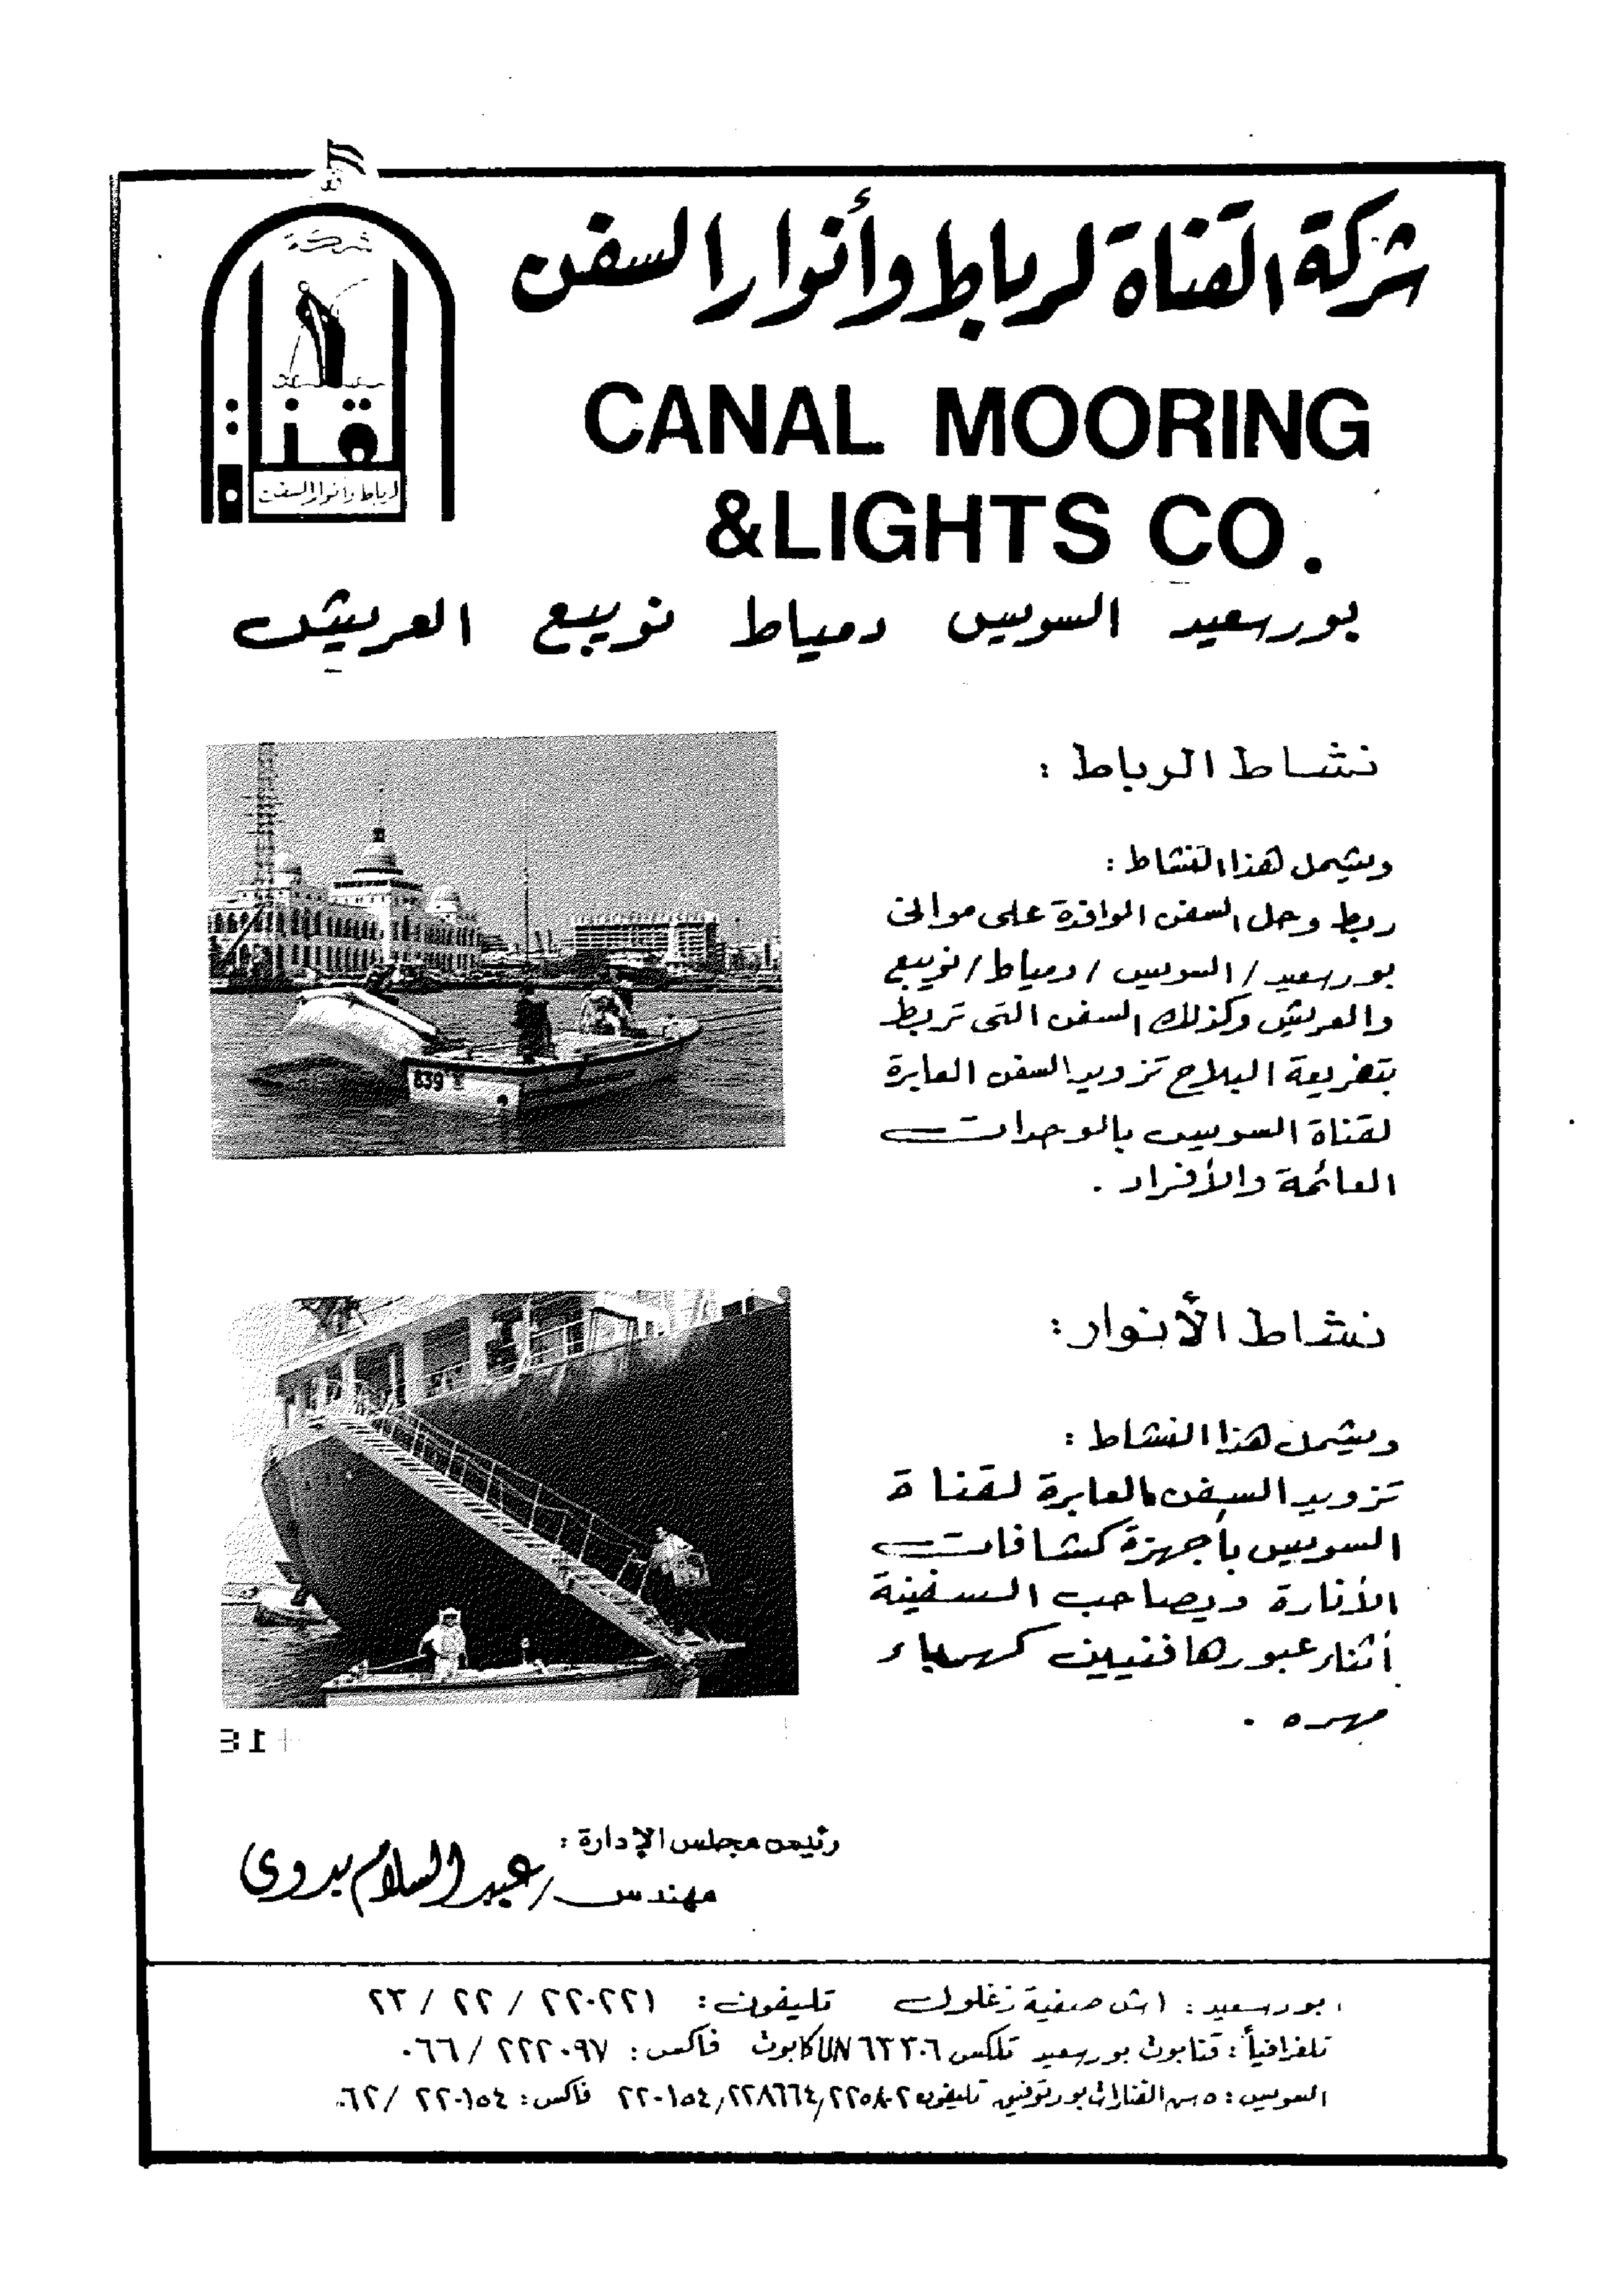 شركة القناة لرباط وأنوار السفن
شركة
قناة
لرباط وأنوار السفن
CANAL MOORING
&LIGHTS CO.
بورسعيد السويس دمياط نويبع العريش
نشاط الرباط :
ويشمل هذا النشاط :
ربط وحل السفن الوافدة على موانى
بورسعيد / السويس / دمياط / نويبع
والعريش وكذلك السفن التى تربط
بتفريعة البلاح تزويد السفن العابرة
لقناة السويس بالوحدات
العائمة والأفراد .
839
نشاط الأنوار :
ويشمل هذا النشاط :
تزويد السفن العابرة لقناة
السويس بأجهزة كشافات
الأنارة ويصاحب السفينة
أثناء عبورها فنيين كهرباء
مهره .
رئيس مجلس الإدارة :
مهندس / عبد السلام بدوى
بورسعيد : ١ ش صفية زغلول تليفون : ٢٢٠٢٢١ / ٢٢ / ٢٣
تلغرافياً : قنابوت بورسعيد تلكس ٦٣٣٠٦ UN كابوت فاكس : ٢٢٢٠٩٧ / ٠٦٦
السويس : ٥ ش القنال بورتوفيق تليفون ٢٢٥٨٠٢ / ٢٢٨٦٦٤ / ٢٢٠١٥٤ فاكس : ٢٢٠١٥٤ / ٠٦٢